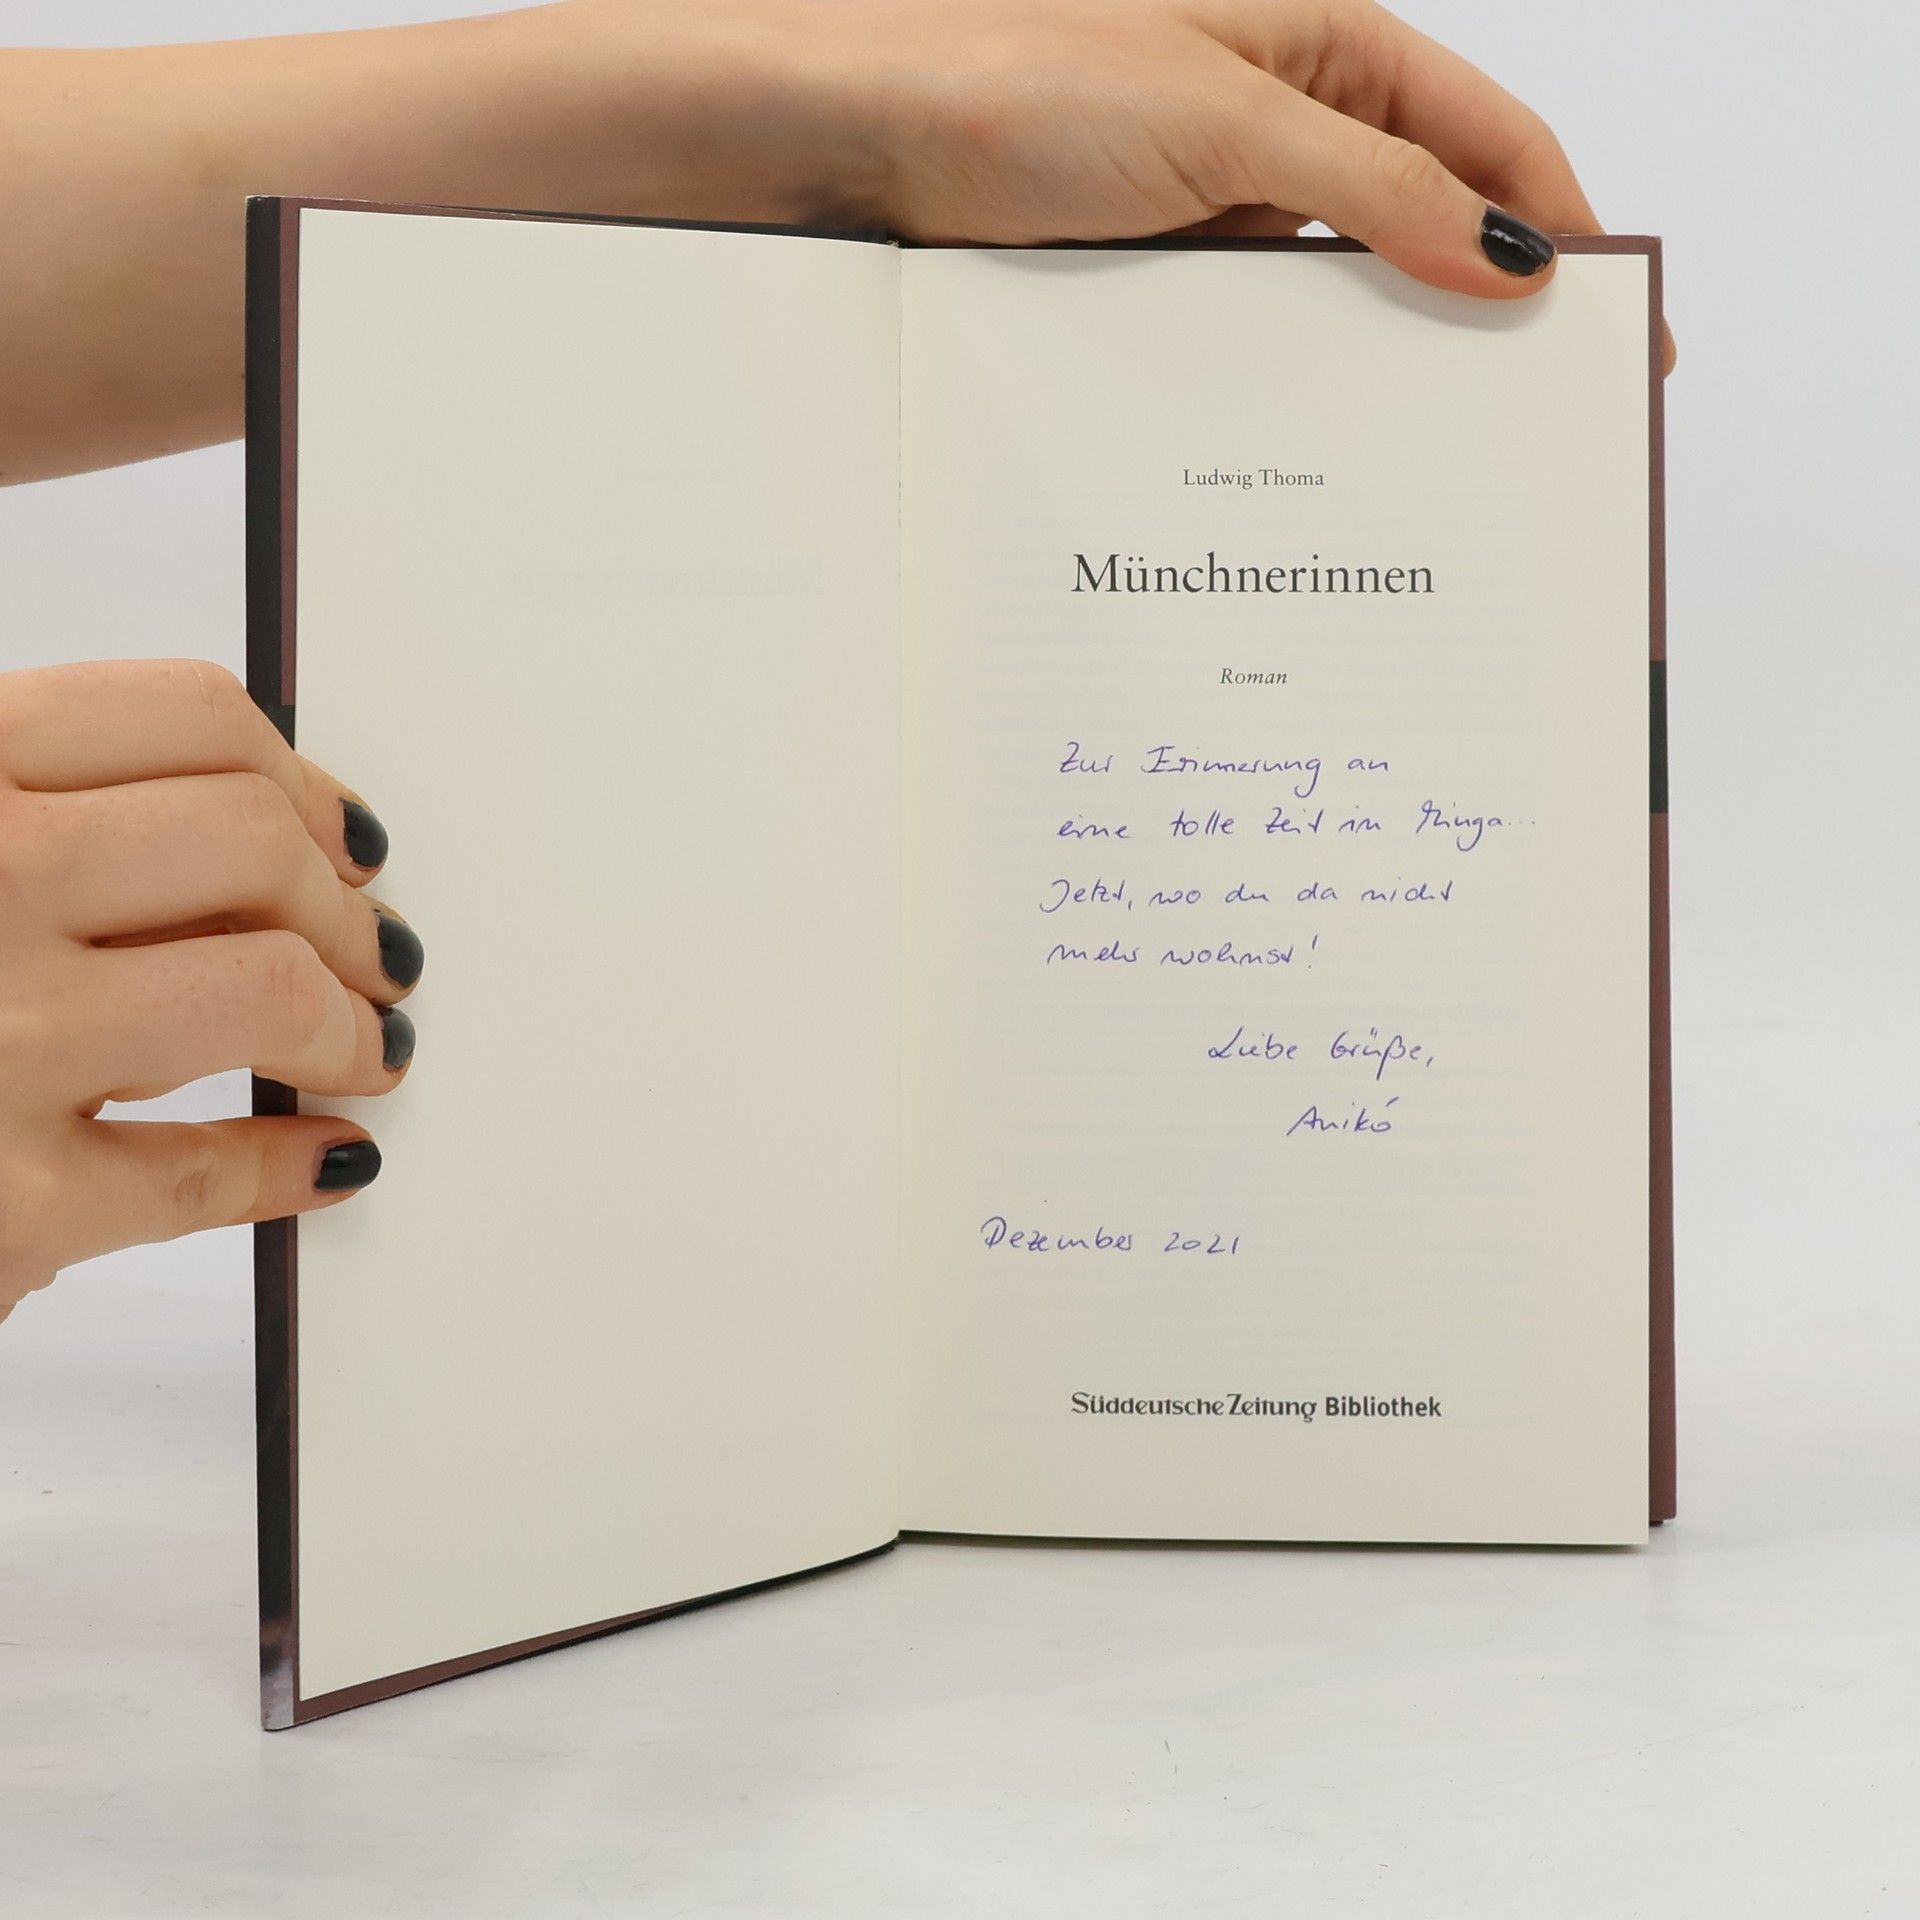 Ludwig Thoma
Münchnerinnen
Roman
Zur Erinnerung an
eine tolle Zeit in Minga...
Jetzt, wo du da nicht
mehr wohnst!
Liebe Grüße,
Anikó
Dezember 2021
Süddeutsche Zeitung Bibliothek